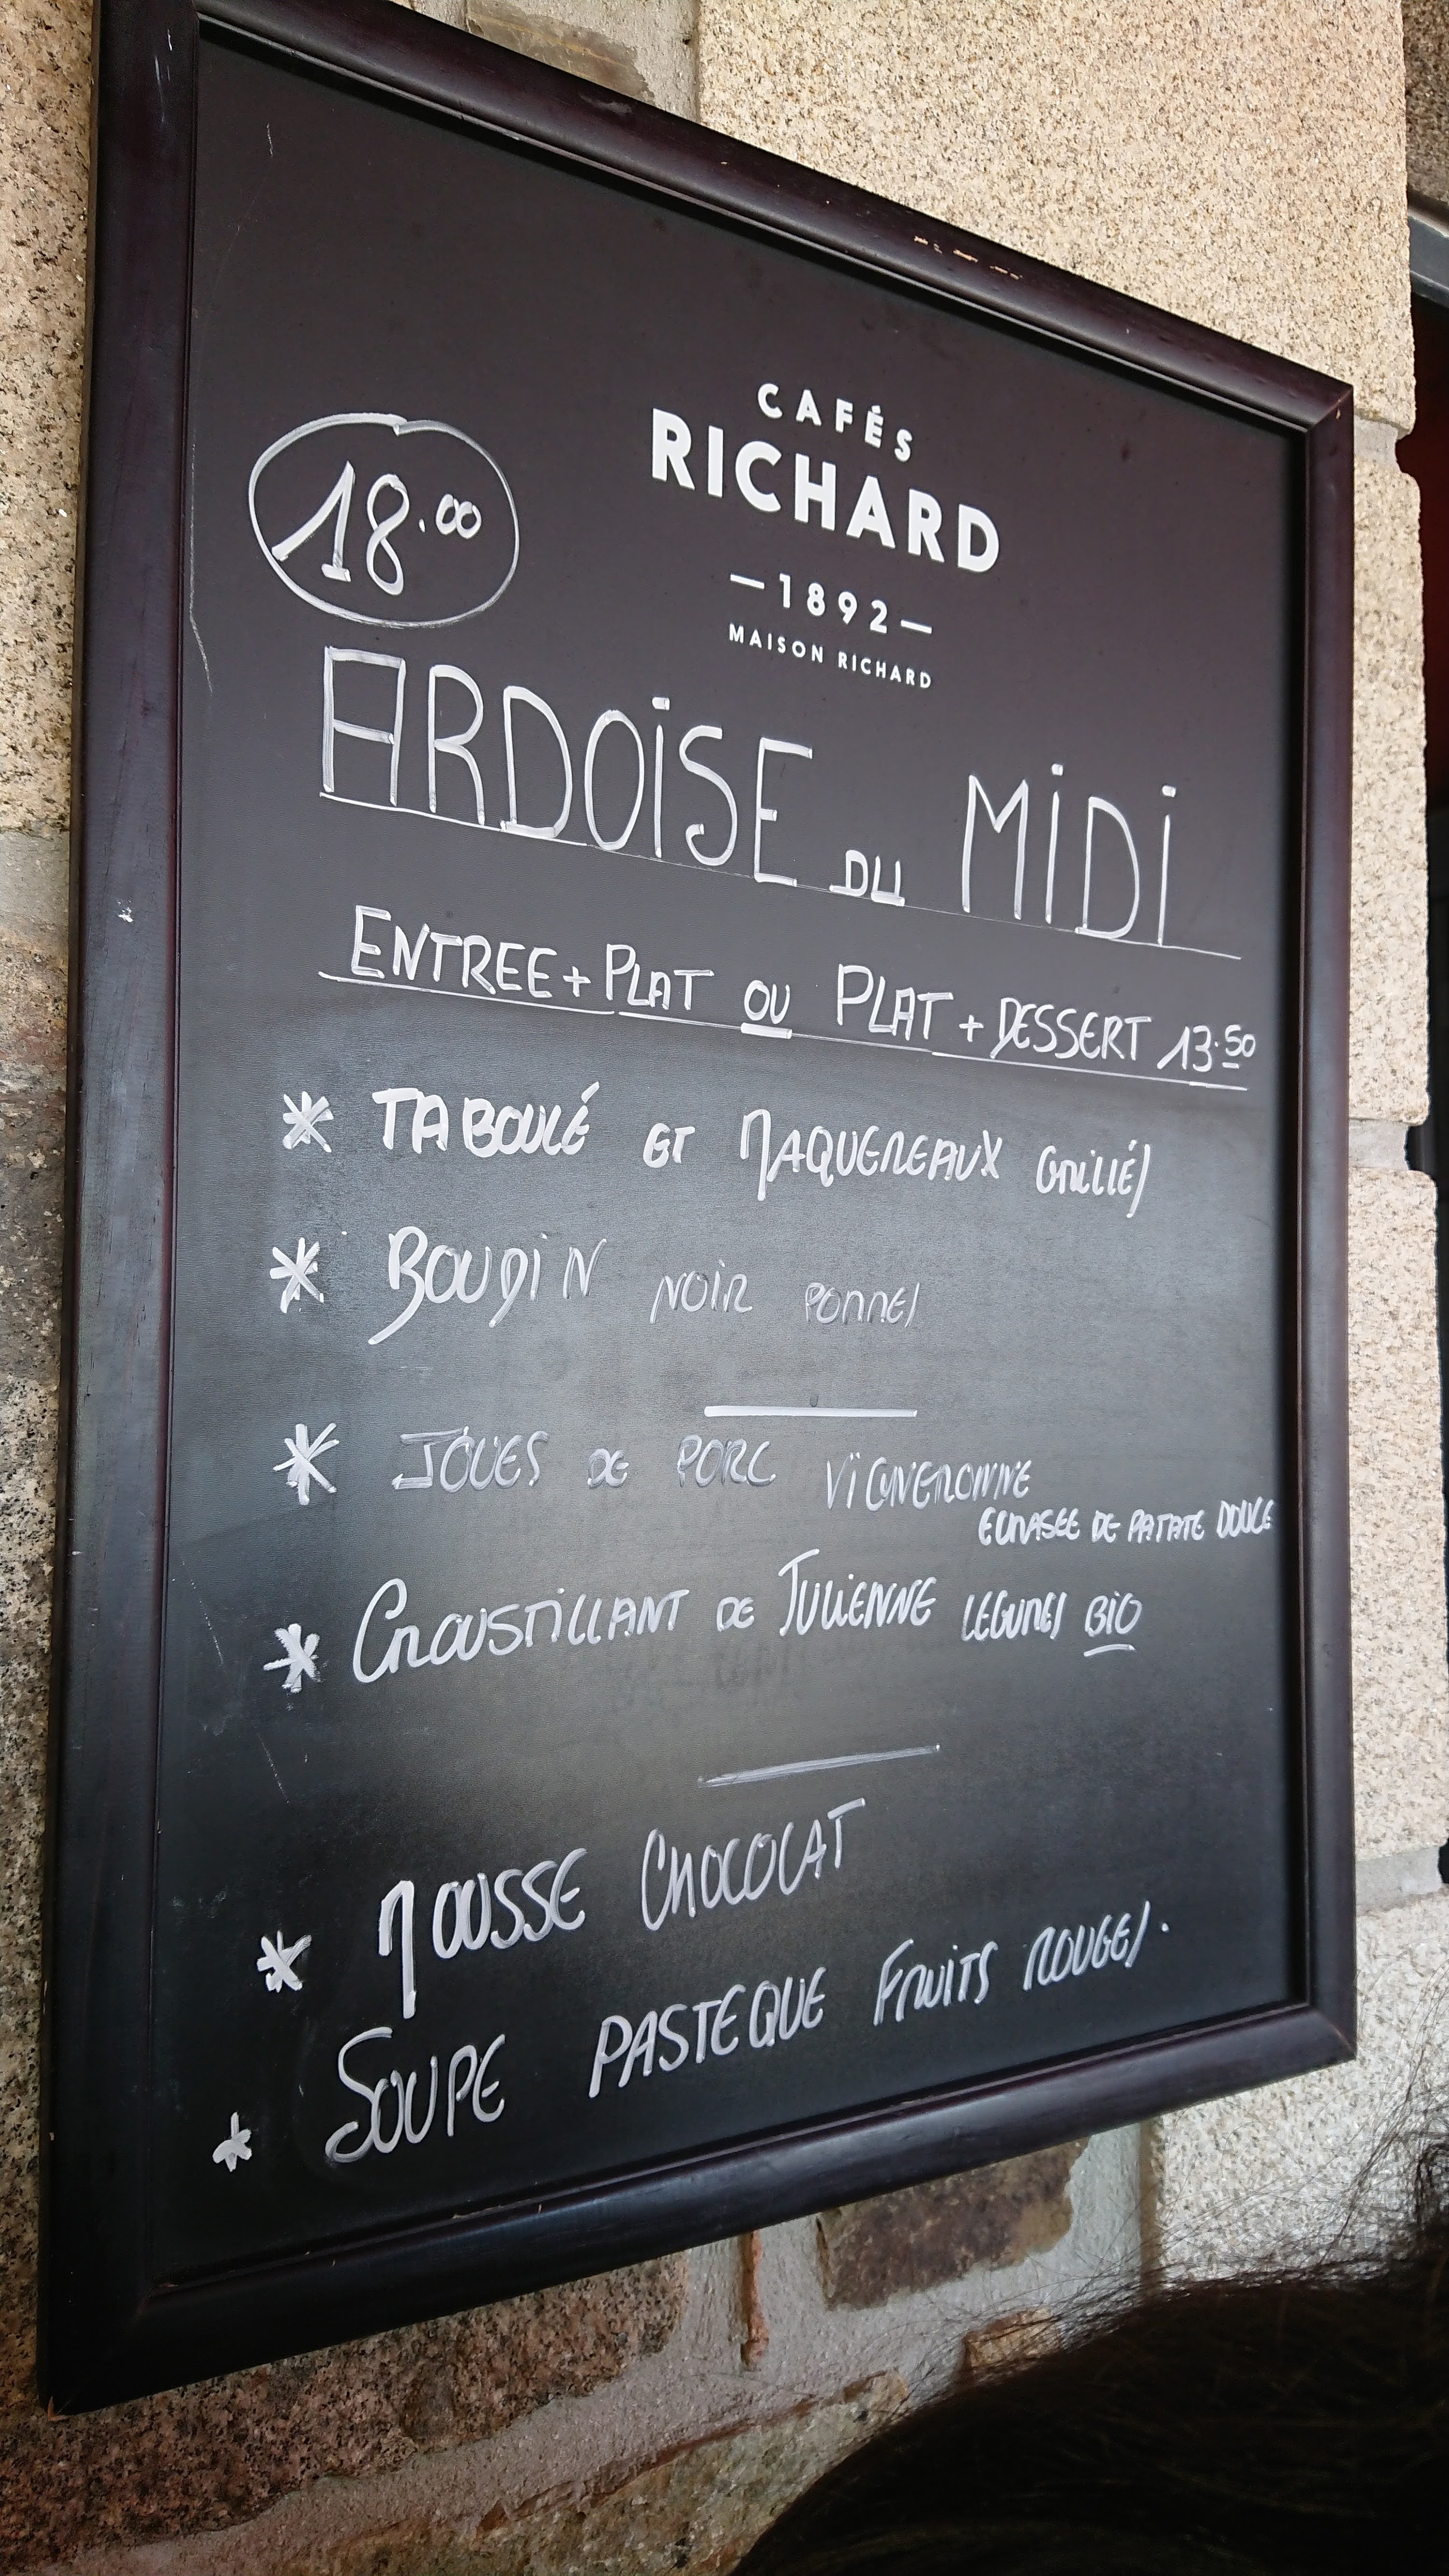 CAFÉS
RICHARD
—1892—
MAISON RICHARD
18.00
ARDOiSE DU MiDi
ENTREE + PLAT OU PLAT + DESSERT 13.50
* TABOULÉ ET MAQUEREAUX GRILLÉS
* BOUDIN NOIR POMMES
* JOUES DE PORC VIGNERONNE
ECRASEE DE PATATE DOUCE
* CROUSTILLANT DE JULIENNE LEGUMES BIO
* MOUSSE CHOCOLAT
* SOUPE PASTEQUE FRUITS ROUGES.